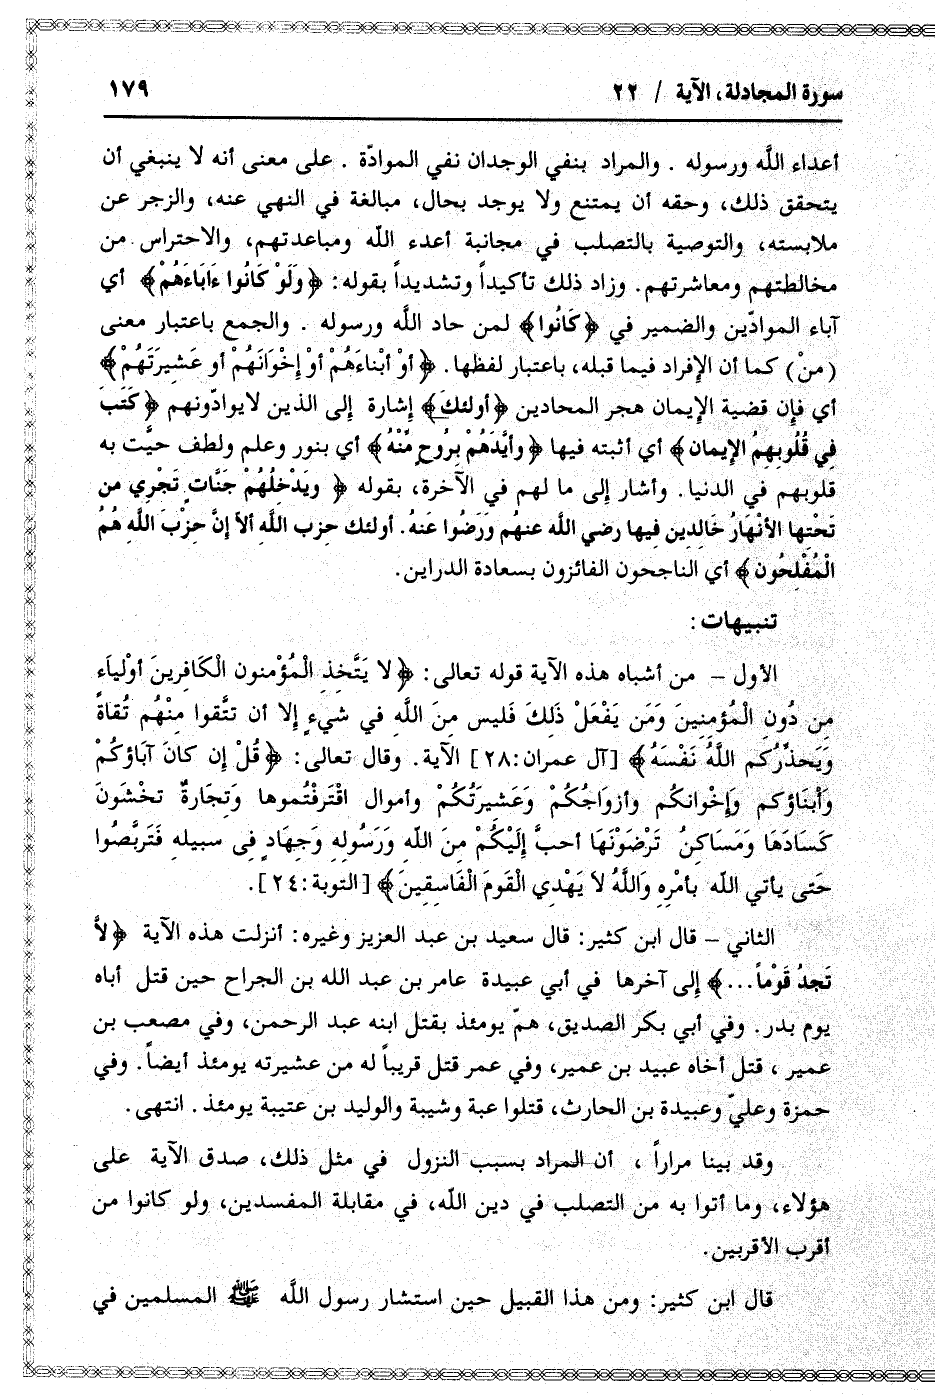 سورة المجادلة، الآية / ٢٢
١٧٩
أعداء اللَّه ورسوله . والمراد بنفي الوجدان نفي الموادّة . على معنى أنه لا ينبغي أن
يتحقق ذلك، وحقه أن يمتنع ولا يوجد بحال، مبالغة في النهي عنه، والزجر عن
ملابسته، والتوصية بالتصلب في مجانبة أعدء اللَّه ومباعدتهم، والاحتراس من
مخالطتهم ومعاشرتهم. وزاد ذلك تأكيداً وتشديداً بقوله: ﴿وَلَوْ كَانُوا ءَابَاءَهُمْ﴾ أي
آباء الموادّين والضمير في ﴿كَانُوا﴾ لمن حاد اللَّه ورسوله . والجمع باعتبار معنى
(منْ) كما أن الإفراد فيما قبله، باعتبار لفظها. ﴿أوْ أبْناءَهُمْ أوْ إخْوَانَهُمْ أو عَشيرَتَهُمْ﴾
أي فإن قضية الإيمان هجر المحادين ﴿أولئكَ﴾ إشارة إلى الذين لايوادّونهم ﴿كَتَبَ
فِي قُلُوبِهِمُ الإيمان﴾ أي أثبته فيها ﴿وأيَّدَهُمْ بِرُوحٍ مِّنْهُ﴾ أي بنور وعلم ولطف حيَّت به
قلوبهم في الدنيا. وأشار إلى ما لهم في الآخرة، بقوله ﴿ ويَدْخلُهُمْ جَنَّات تَجْرِي من
تَحْتِها الأنْهَارُ خَالِدين فِيها رضي اللَّه عنهُم وَرَضُوا عَنهُ. أولئك حزب اللَّه ألاَ إنَّ حزْبَ اللَّه هُمُ
الْمُفْلحُون﴾ أي الناجحون الفائزون بسعادة الدراين.
تنبيهات:
الأول – من أشباه هذه الآية قوله تعالى: ﴿لا يَتَّخذِ الْمُؤْمنون الْكَافِرينَ أوْلياَءَ
مِن دُونِ الْمُؤمِنِينَ وَمَن يَفْعَلْ ذَلكَ فَليس منَ اللَّه في شيءٍ إلا أن تتَّقوا مِنْهُم تُقاةً
وَيَحذِّرُكم اللَّهُ نَفْسَهُ﴾ [آل عمران:٢٨] الآية. وقال تعالى: ﴿قُلْ إن كانَ آبَاؤكُمْ
وَأَبْنَاؤكم وَإخْوانكُم وأزوَاجُكُمْ وَعَشيرَتُكُمْ وأموال اقْتَرفْتُموها وَتجَارةٌ تخْشَونَ
كَسادَهَا وَمَسَاكنُ تَرْضَوْنَهَا أحبَّ إلَيْكُمْ منَ اللَّه وَرَسُوله وَجهَادٍ فى سبيله فَتربَّصُوا
حَتى يأتي اللَّه بأمْرِه وَاللَّهُ لاَ يَهْدي الْقومَ الْفَاسقِينَ﴾ [التوبة:٢٤].
الثاني – قال ابن كثير: قال سعيد بن عبد العزيز وغيره: أنزلت هذه الآية ﴿لاَّ
تَجدُ قَوْماً...﴾ إلى آخرها في أبي عبيدة عامر بن عبد الله بن الجراح حين قتل أباه
يوم بدر. وفي أبي بكر الصديق، همّ يومئذ بقتل ابنه عبد الرحمن، وفي مصعب بن
عمير ، قتل أخاه عبيد بن عمير، وفي عمر قتل قريباً له من عشيرته يومئذ أيضاً. وفي
حمزة وعليّ وعبيدة بن الحارث، قتلوا عبة وشيبة والوليد بن عتيبة يومئذ. انتهى.
وقد بينا مراراً ، أن المراد بسبب النزول في مثل ذلك، صدق الآية على
هؤلاء، وما أتوا به من التصلب في دين اللَّه، في مقابلة المفسدين، ولو كانوا من
أقرب الأقربين.
قال ابن كثير: ومن هذا القبيل حين استشار رسول اللَّه ﷺ المسلمين في